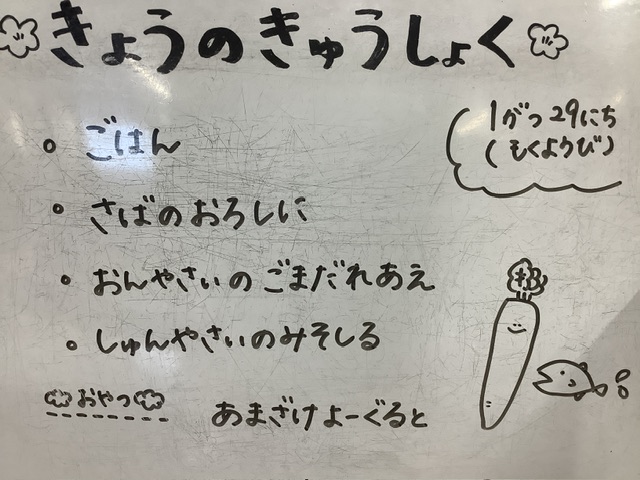 きょうのきゅうしょく
1がつ29にち
(もくようび)
。ごはん
。さばのおろしに
。おんやさいのごまだれあえ
。しゅんやさいのみそしる
おやつ あまざけよーぐると